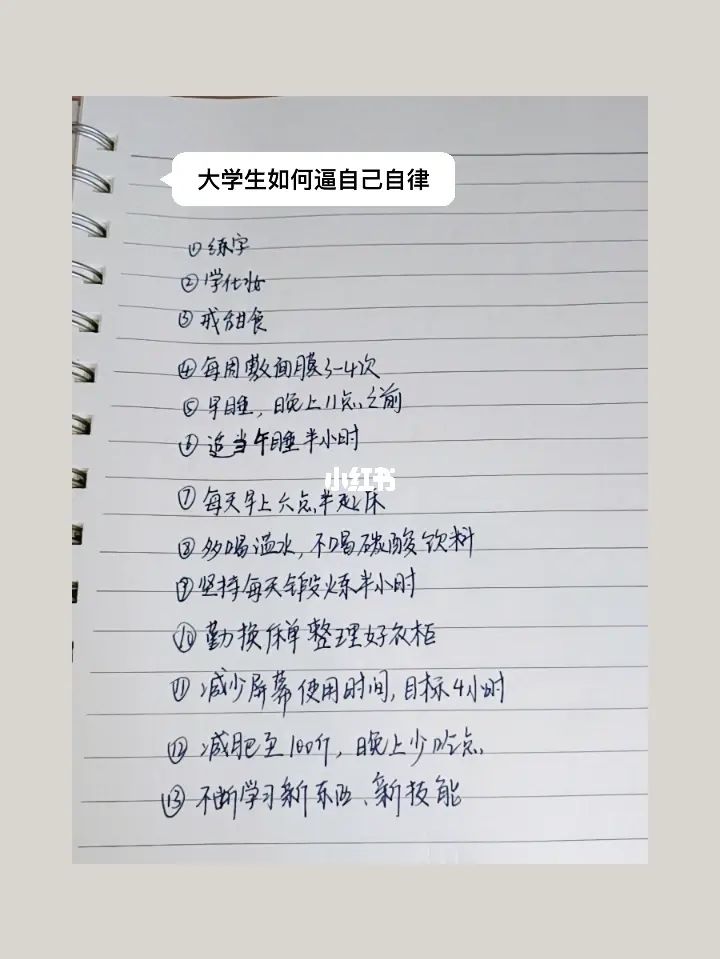 大学生如何逼自己自律
①练字
②学化妆
③戒甜食
④每周敷面膜3-4次
⑤早睡，晚上11点之前
⑥适当午睡半小时
小红书
⑦每天早上六点半起床
⑧多喝温水，不喝碳酸饮料
⑨坚持每天锻炼半小时
⑩勤换床单整理好衣柜
⑪减少屏幕使用时间，目标4小时
⑫减肥至100斤，晚上少吃点
⑬不断学习新东西、新技能